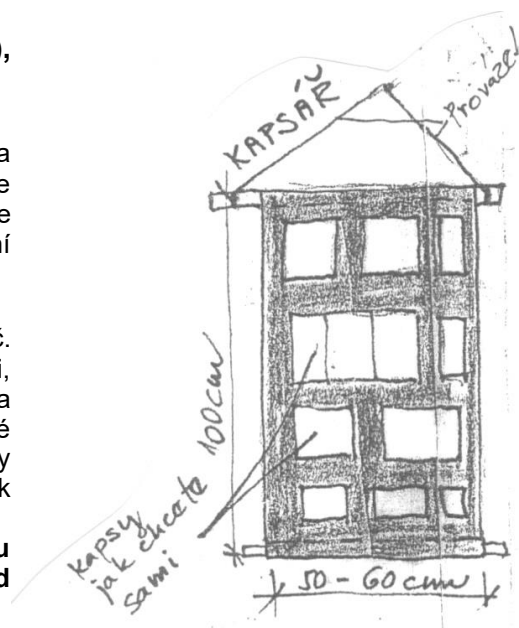 ,
a
e
e
ní
č.
i,
a
é
y
k
u
d
KAPSÁŘ
Provázek
100cm
kapsy
jak chcete
sami
50 - 60 cm